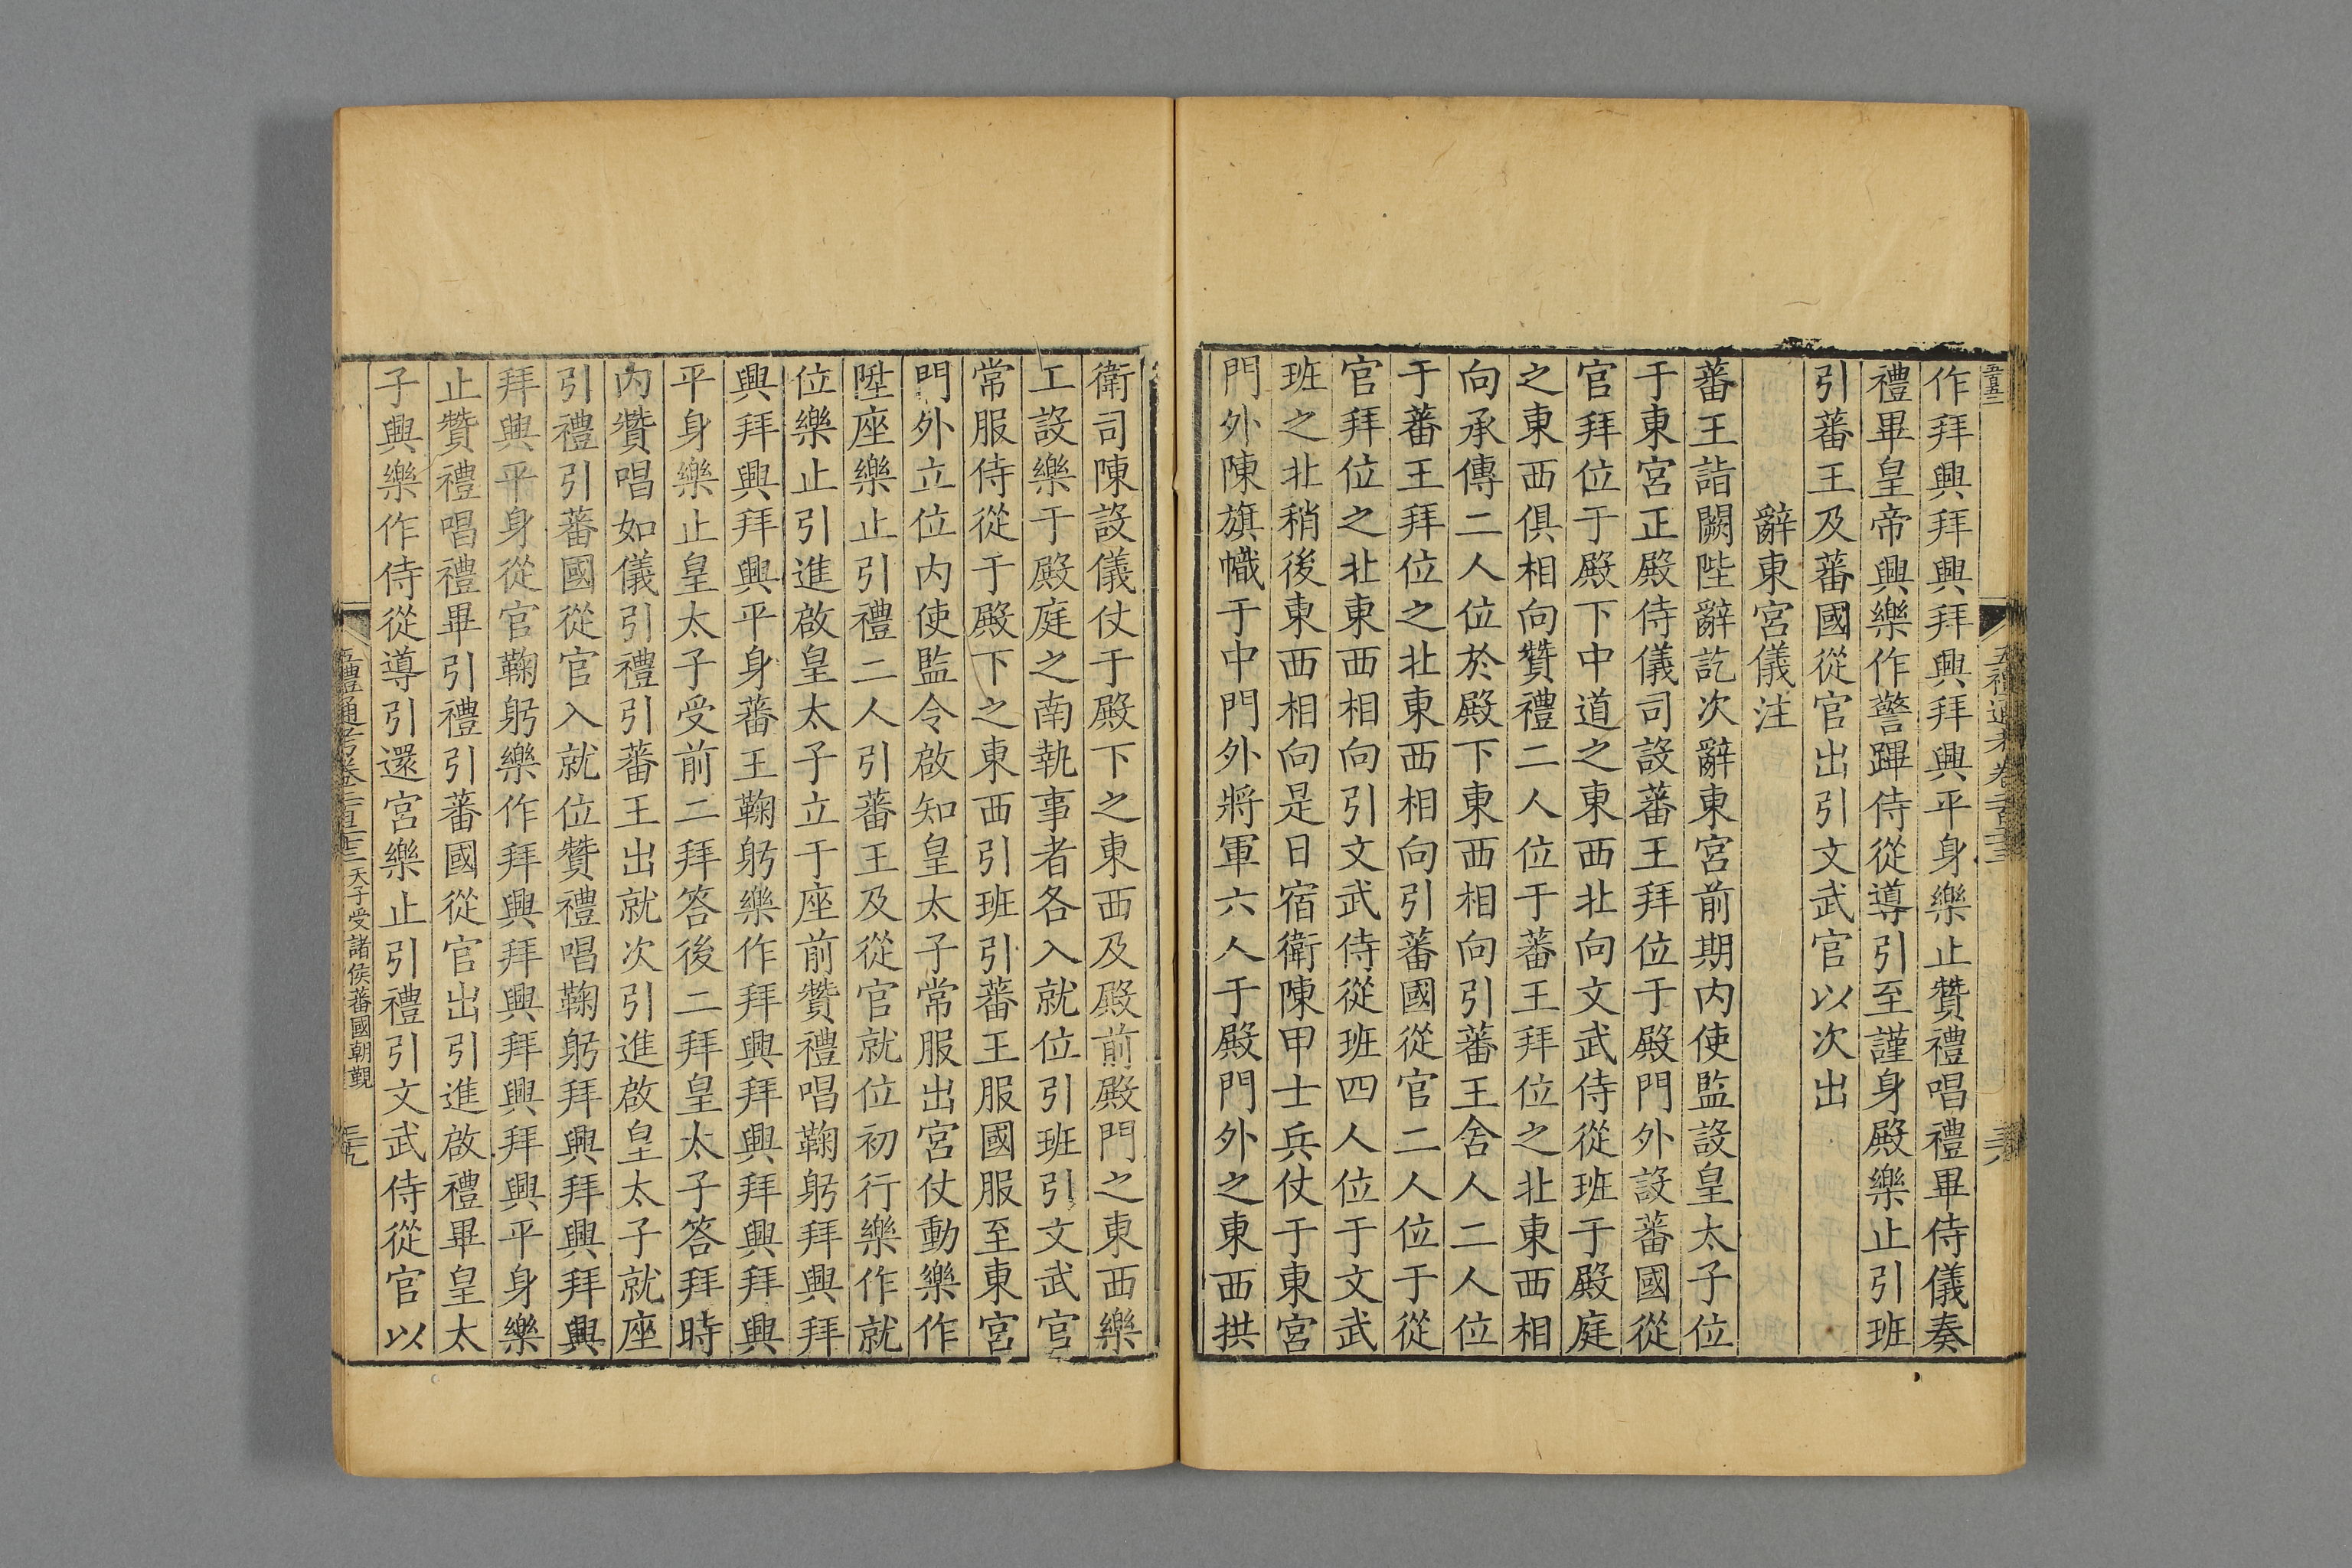 作拜興拜興拜興拜興平身樂止贊禮唱禮畢侍儀奏
禮畢皇帝興樂作警蹕侍從導引至謹身殿樂止引班
引蕃王及蕃國從官出引文武官以次出
辭東宮儀注
蕃王詣闕陛辭訖次辭東宮前期内使監設皇太子位
于東宮正殿侍儀司設蕃王拜位于殿門外設蕃國從
官拜位于殿下中道之東西北向文武侍從班于殿庭
之東西俱相向贊禮二人位于蕃王拜位之北東西相
向承傳二人位於殿下東西相向引蕃王舍人二人位
于蕃王拜位之北東西相向引蕃國從官二人位于從
官拜位之北東西相向引文武侍從班四人位于文武
班之北稍後東西相向是日宿衛陳甲士兵仗于東宮
門外陳旗幟于中門外將軍六人于殿門外之東西拱
衛司陳設儀仗于殿下之東西及殿前殿門之東西樂
工設樂于殿庭之南執事者各入就位引班引文武官
常服侍從于殿下之東西引班引蕃王服國服至東宮
門外立位内使監令啟知皇太子常服出宮仗動樂作
陞座樂止引禮二人引蕃王及從官就位初行樂作就
位樂止引進啟皇太子立于座前贊禮唱鞠躬拜興拜
興拜興拜興平身蕃王鞠躬樂作拜興拜興拜興拜興
平身樂止皇太子受前二拜答後二拜皇太子答拜時
内贊唱如儀引禮引蕃王出就次引進啟皇太子就座
引禮引蕃國從官入就位贊禮唱鞠躬拜興拜興拜興
拜興平身從官鞠躬樂作拜興拜興拜興拜興平身樂
止贊禮唱禮畢引禮引蕃國從官出引進啟禮畢皇太
子興樂作侍從導引還宮樂止引禮引文武侍從官以
五禮通考卷二百二十三 天子受諸侯蕃國朝覲 三十九